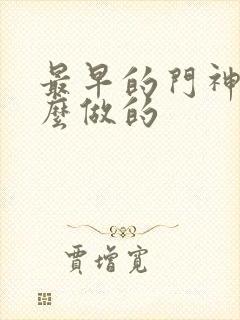 最早的門神
麼做的
賈增寬